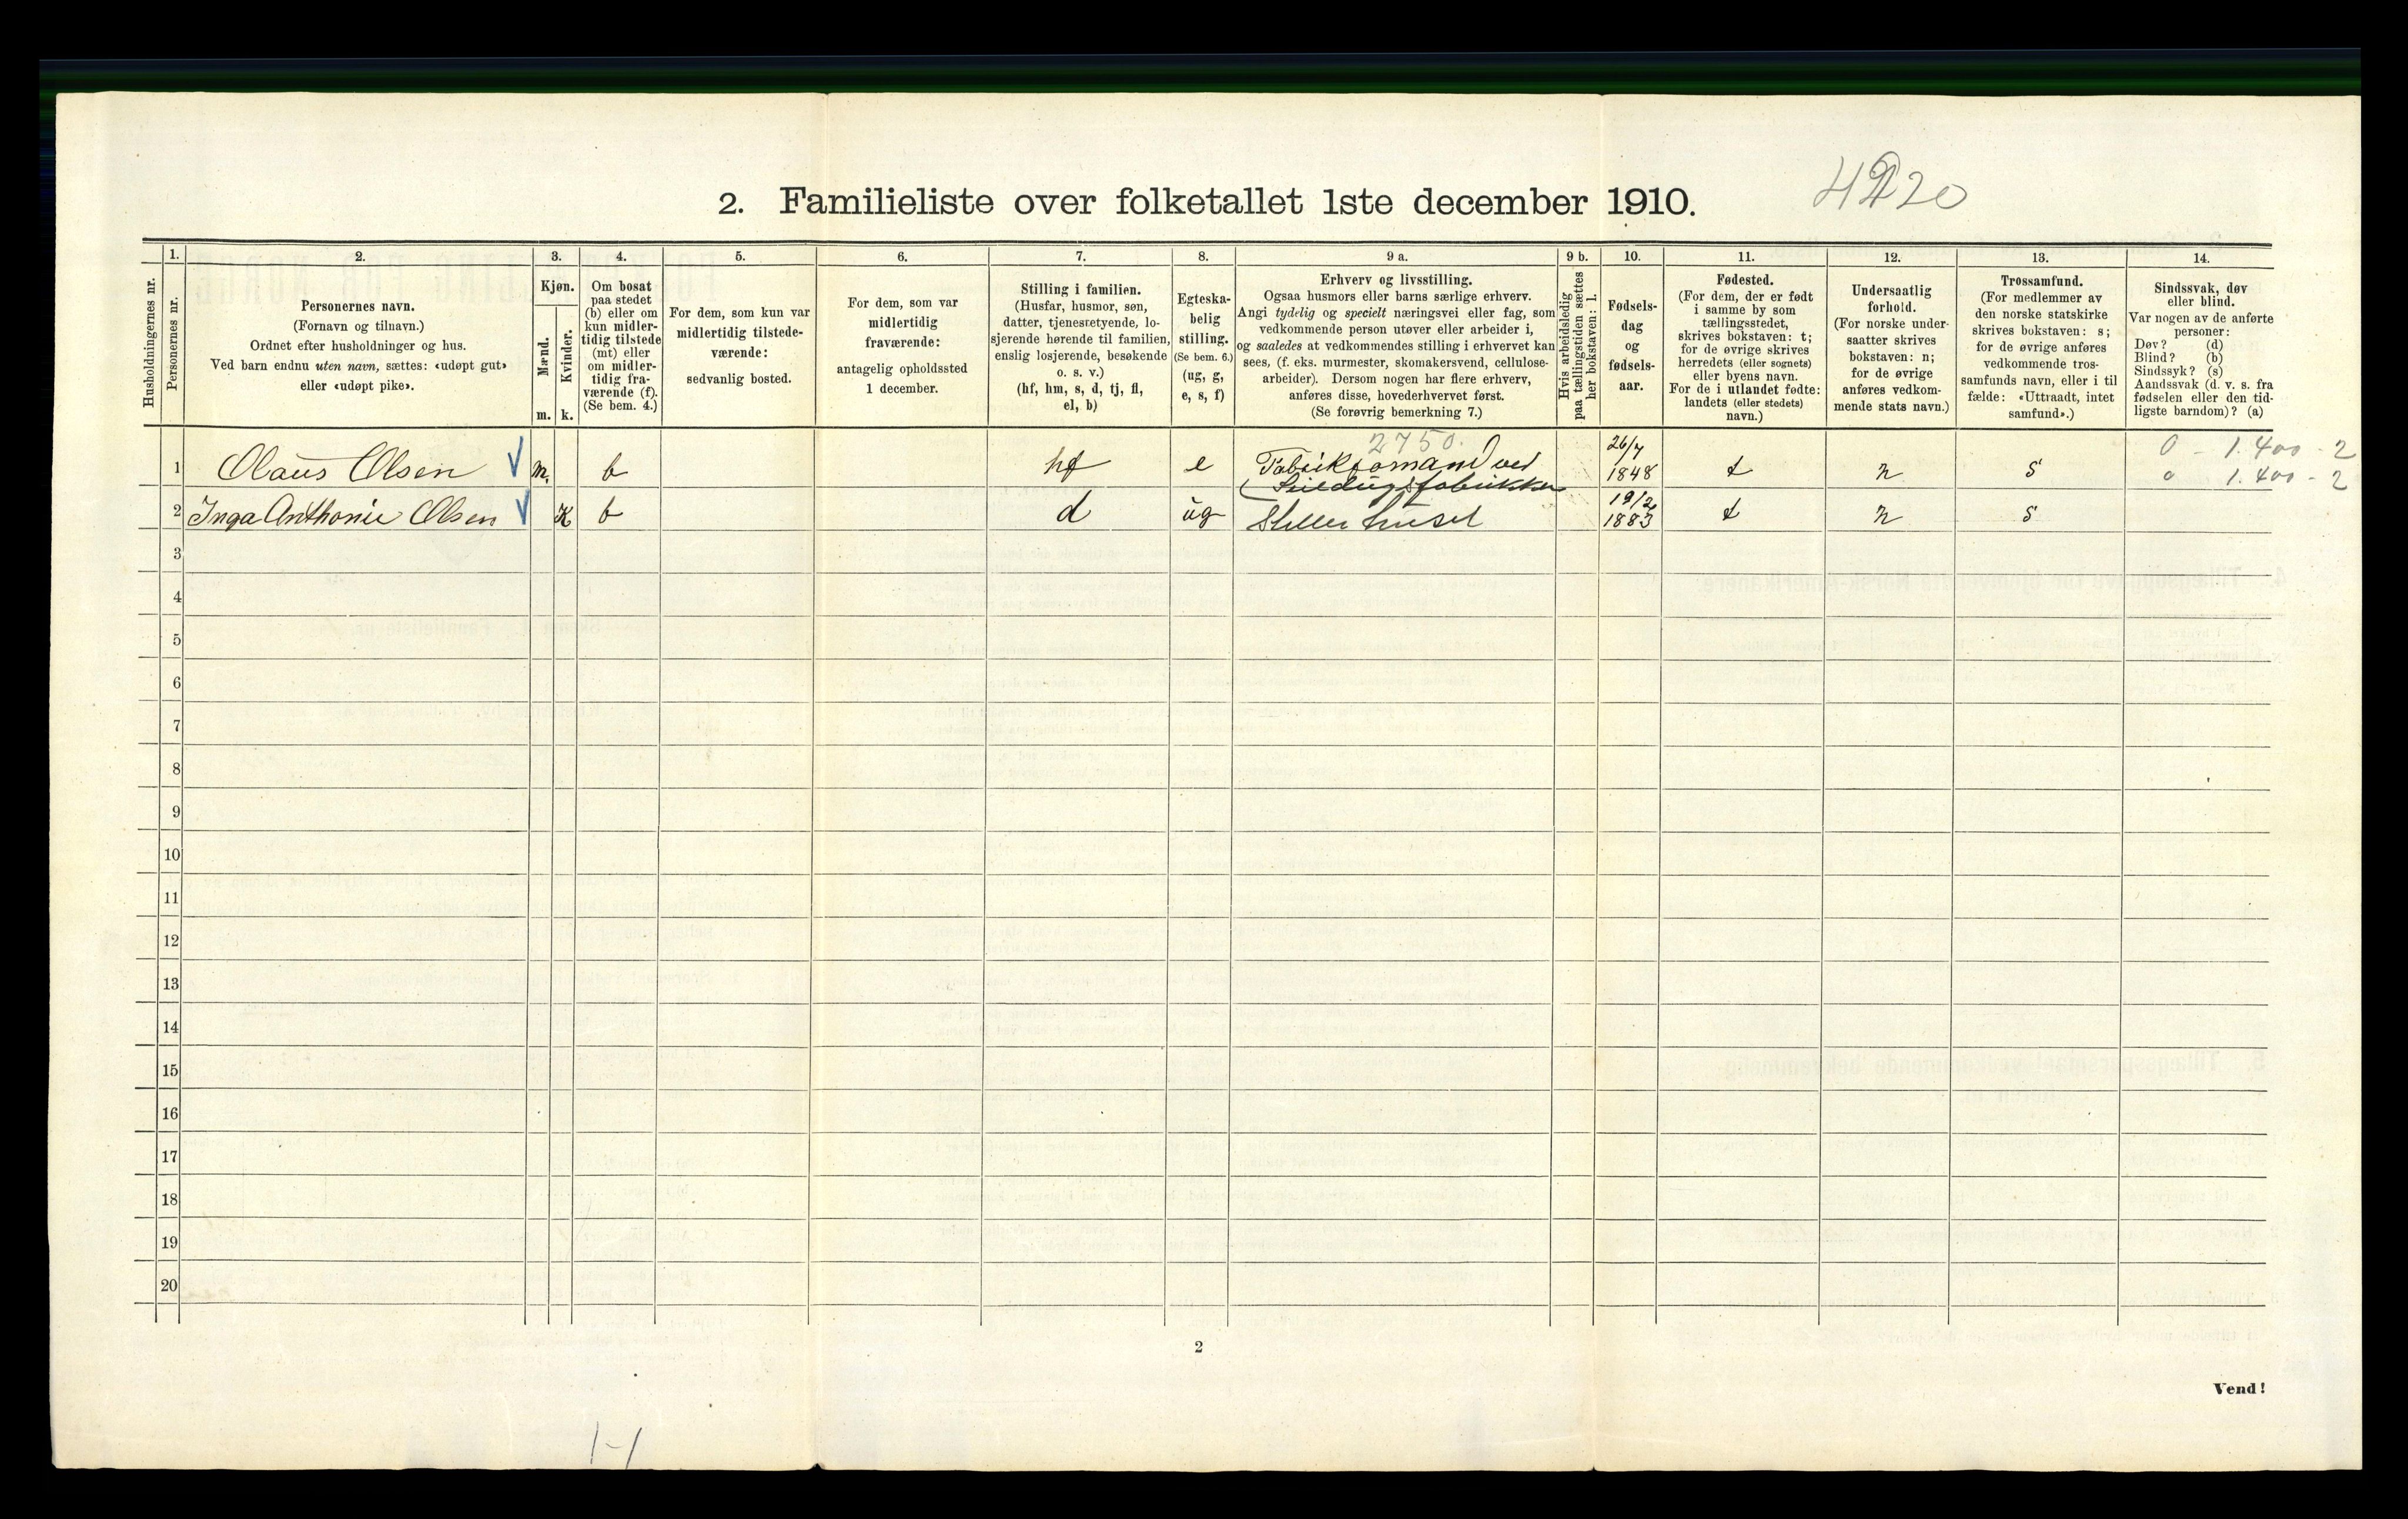 4220
2. Familieliste over folketallet 1ste december 1910.
Husholdningernes nr.
1.
Personernes nr.
2.
Personernes navn.
(Fornavn og tilnavn.)
Ordnet efter husholdninger og hus.
Ved barn endnu uten navn, sættes: «udøpt gut»
eller «udøpt pike».
3.
Kjøn.
Mænd.
m.
Kvinder.
k.
4.
Om bosat
paa stedet
(b) eller om
kun midler-
tidig tilstede
(mt) eller
om midler-
tidig fra-
værende (f).
(Se bem. 4.)
5.
For dem, som kun var
midlertidig tilstede-
værende:
sedvanlig bosted.
6.
For dem, som var
midlertidig
fraværende:
antagelig opholdssted
1 december.
7.
Stilling i familien.
(Husfar, husmor, søn,
datter, tjenestetyende, lo-
sjerende hørende til familien,
enslig losjerende, besøkende
o. s. v.)
(hf, hm, s, d, tj, fl,
el, b)
8.
Egteska-
belig
stilling.
(Se bem. 6.)
(ug, g,
e, s, f)
9 a.
Erhverv og livsstilling.
Ogsaa husmors eller barns særlige erhverv.
Angi tydelig og specielt næringsvei eller fag, som
vedkommende person utøver eller arbeider i,
og saaledes at vedkommendes stilling i erhvervet kan
sees, (f. eks. murmester, skomakersvend, cellulose-
arbeider). Dersom nogen har flere erhverv,
anføres disse, hovederhvervet først.
(Se forøvrig bemerkning 7.)
9 b.
Hvis arbeidsledig
paa tællingstiden sættes
her bokstaven: l.
10.
Fødsels-
dag
og
fødsels-
aar.
11.
Fødested.
(For dem, der er født
i samme by som
tællingsstedet,
skrives bokstaven: t;
for de øvrige skrives
herredets (eller sognets)
eller byens navn.
For de i utlandet fødte:
landets (eller stedets)
navn.)
12.
Undersaatlig
forhold.
(For norske under-
saatter skrives
bokstaven: n;
for de øvrige
anføres vedkom-
mende stats navn.)
13.
Trossamfund.
(For medlemmer av
den norske statskirke
skrives bokstaven: s;
for de øvrige anføres
vedkommende tros-
samfunds navn, eller i til
fælde: «Uttraadt, intet
samfund».)
14.
Sindssvak, døv
eller blind.
Var nogen av de anførte
personer:
Døv? (d)
Blind? (b)
Sindssyk? (s)
Aandssvak (d. v. s. fra
fødselen eller den tid-
ligste barndom)? (a)
2750.
0 - 1.400 - 2
1 Olaus Olsen m. b hf e Fabrikformand ved 26/7 1848 t n s
0 1.400 - 2
2 Inga Anthonie Olsen K b d ug Steller huset 19/2 1883 t n s
3
4
5
6
7
8
9
10
11
12
13
14
15
16
17
18
19
20
2
Vend!
1-1